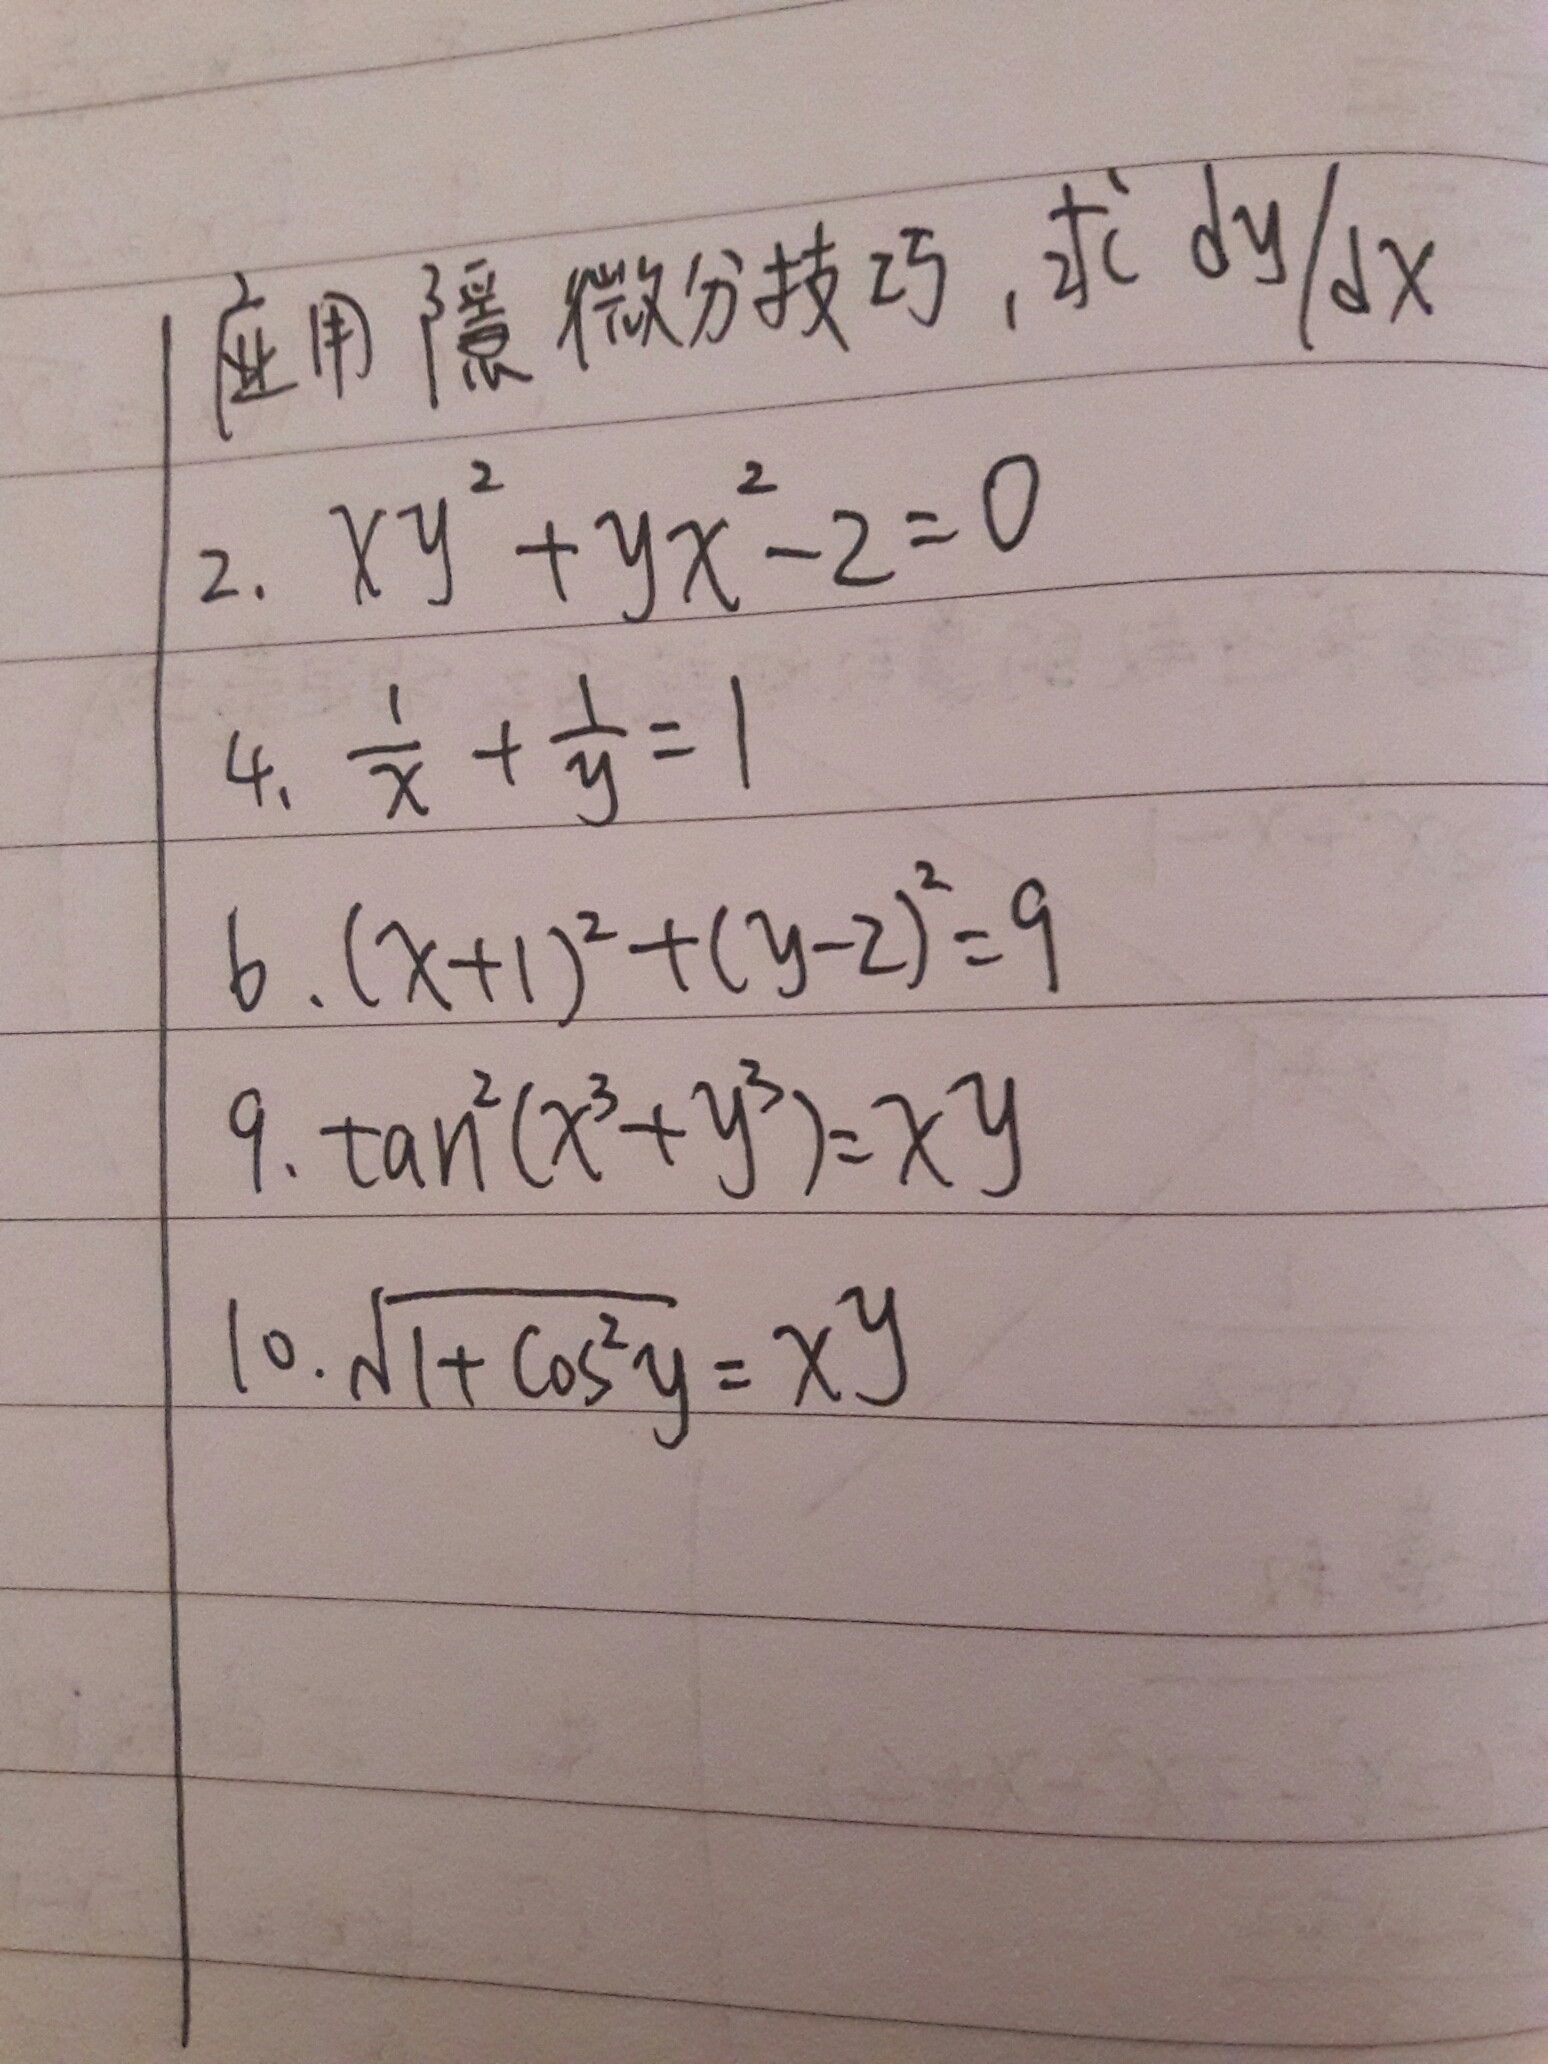 应用隱微分技巧，求 dy/dx
2. xy² + yx² - 2 = 0
4. 1/x + 1/y = 1
6. (x+1)² + (y-2)² = 9
9. tan²(x³+y³) = xy
10. √(1+cos²y) = xy